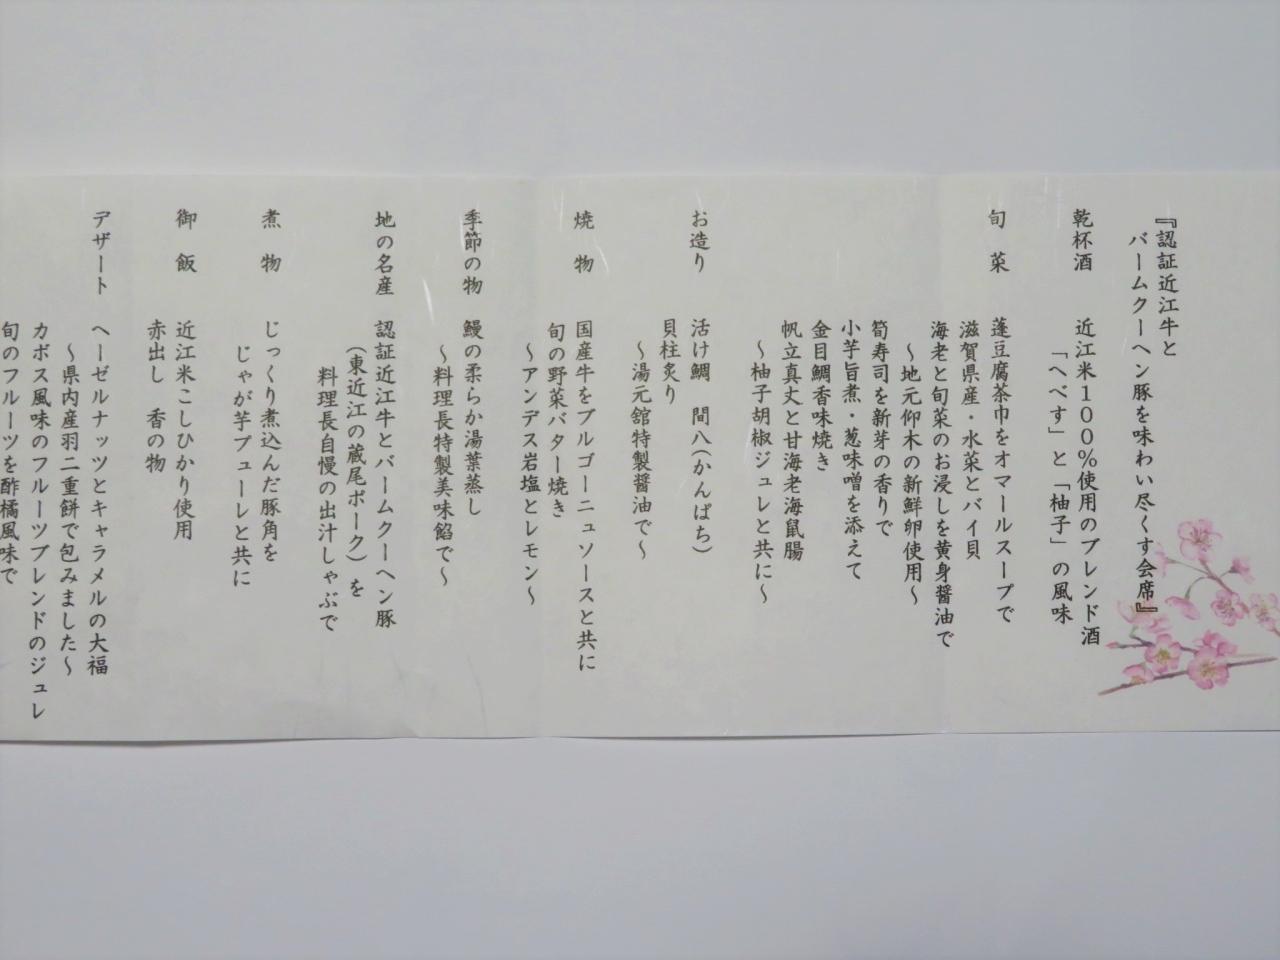 『認証近江牛と
バームクーヘン豚を味わい尽くす会席』
乾杯酒 近江米100%使用のブレンド酒
「へべす」と「柚子」の風味
旬菜 蓬豆腐茶巾をオマールスープで
滋賀県産・水菜とバイ貝
海老と旬菜のお浸しを黄身醤油で
~地元仰木の新鮮卵使用~
筍寿司を新芽の香りで
小芋旨煮・葱味噌を添えて
金目鯛香味焼き
帆立真丈と甘海老海鼠腸
~柚子胡椒ジュレと共に~
お造り 活け鯛 間八(かんぱち)
貝柱炙り
~湯元舘特製醤油で~
焼物 国産牛をブルゴーニュソースと共に
旬の野菜バター焼き
~アンデス岩塩とレモン~
季節の物 鰻の柔らか湯葉蒸し
~料理長特製美味餡で~
地の名産 認証近江牛とバームクーヘン豚
(東近江の蔵尾ポーク)を
料理長自慢の出汁しゃぶで
煮物 じっくり煮込んだ豚角を
じゃが芋ブューレと共に
御飯 近江米こしひかり使用
赤出し 香の物
デザート ヘーゼルナッツとキャラメルの大福
~県内産羽二重餅で包みました~
カボス風味のフルーツブレンドのジュレ
旬のフルーツを酢橘風味で